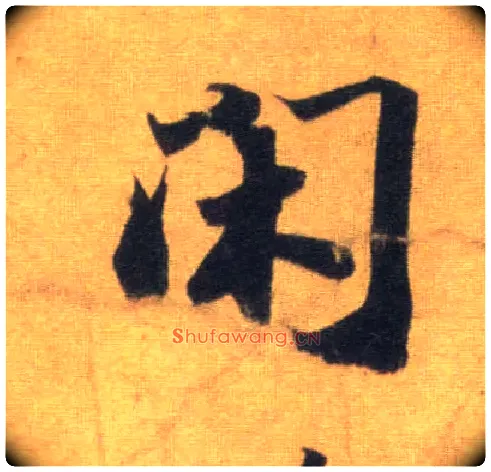 闲
Shufawang.CN